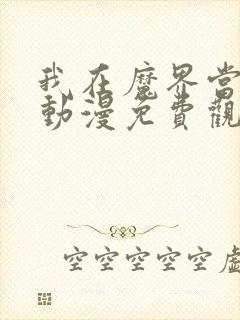 我在魔界當
動漫免費觀
空空空空空虛